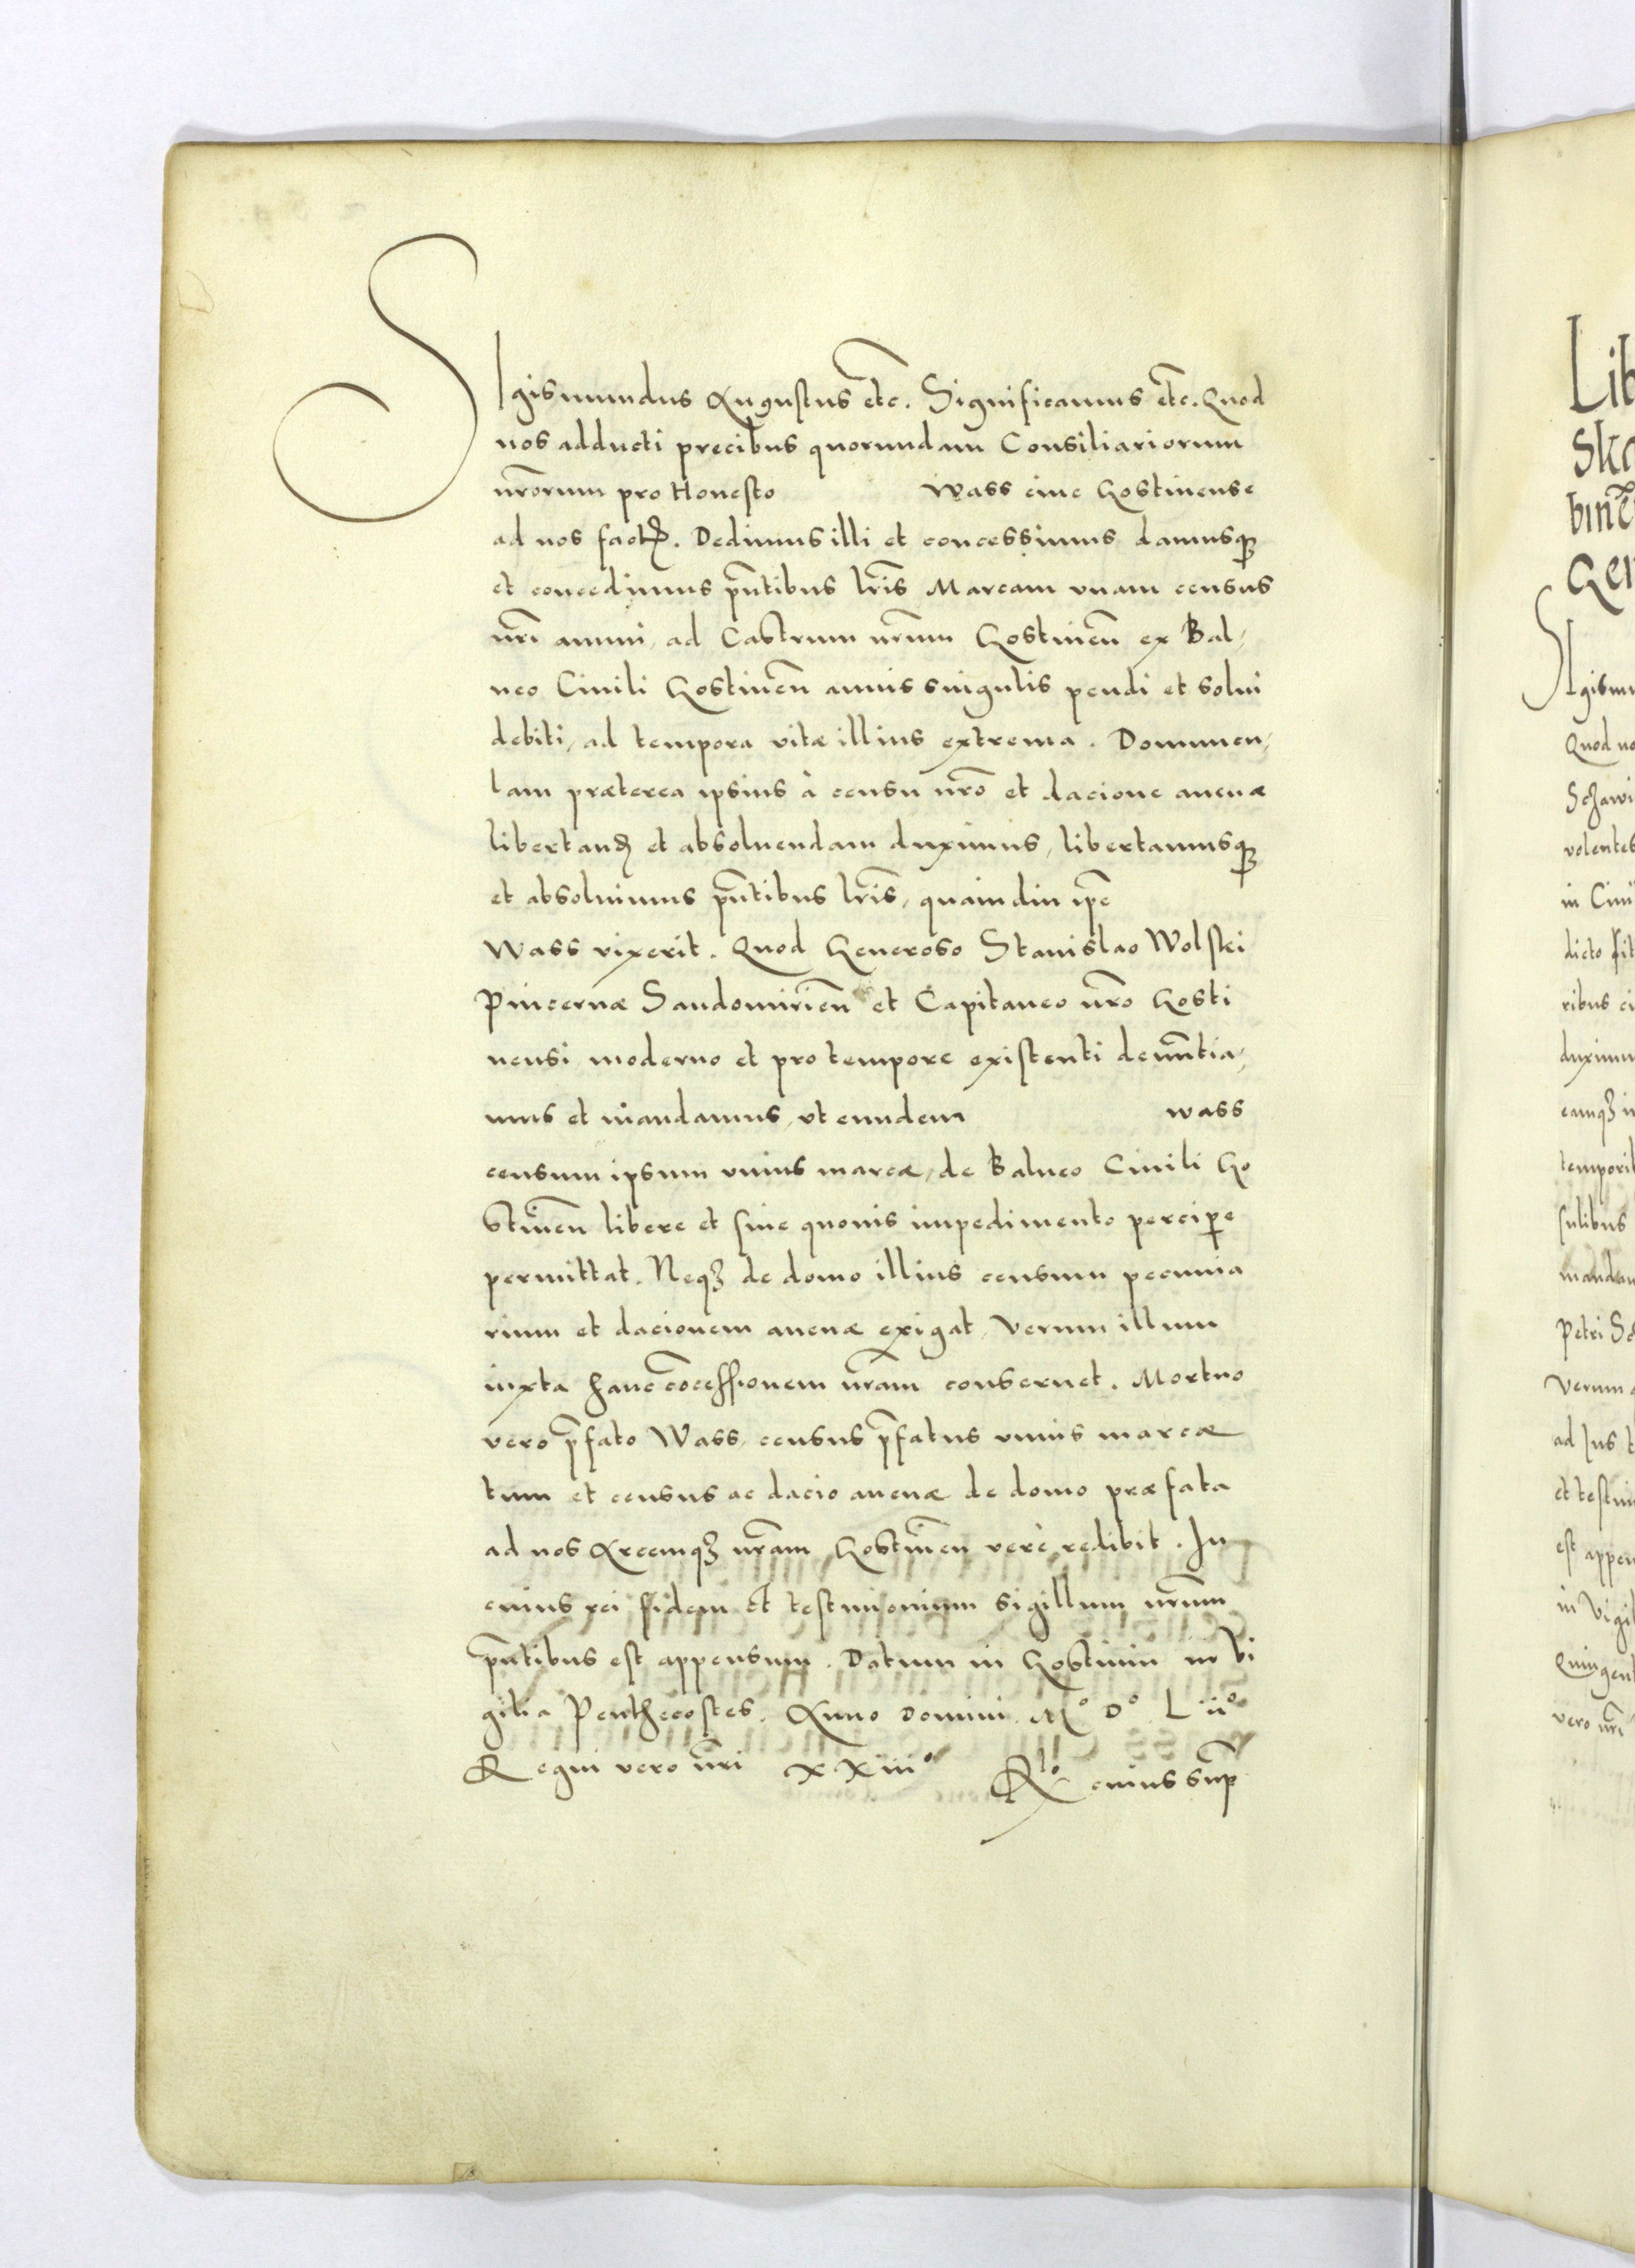 SIgismundus Augustus etc. Significamus etc. Quod
nos adducti precibus quorundam Consiliariorum
nr̃orum pro Honesto Wass ciue Gostinense
ad nos fact. Dedimus illi et concessimus damusq
et concedimus pñtibus lr̃is Marcam vnam census
nr̃i annui, ad Castrum nr̃um Gostineñ ex Bal,
neo Ciuili Gostineñ annis singulis pendi et solui
debiti, ad tempora vitæ illius extrema. Domunen,
lam præterea ipsius à censu nr̃o et dacione auenæ
libertand et absoluendam duximus, libertamusq
et absoluimus pñtibus lr̃is, quamdiu ip̃e
Wass vixerit. Quod Generoso Stanislao Wolski
Pincernæ Sandomirieñ et Capitaneo nr̃o Gosti
nensi moderno et pro tempore existenti denũtia,
mus et mandamus, vt eundem wass
censum ipsum vnius marcæ, de Balneo Ciuili Go
stineñ libere et sine quouis impedimento percipe
permittat. Neqʒ de domo illius censum pecunia
rium et dacionem auenæ exigat, verum illum
iuxta hanc cõcessionem nr̃am conseruet. Mortuo
vero p̃fato Wass, census p̃fatus vnius marcæ
tum et census ac dacio auenæ de domo præfata
ad nos Arcemqʒ nr̃am Gostineñ verè redibit. In
cuius rei fidem et testimonium sigillum nr̃um
pñtibus est appensum. Datum in Gostinin in Vi
gilia Penthecostes. Anno Domini M° D° L ii°
Regni vero nr̃i XXiii° Rlo cuius sup̃
Lib
Ska
binẽ
Gen
SIgismu
Quod no
Schawi
volentes
in Ciui
dicto fit
ribus ci
duximu
eamqʒ i
temporib
sulibus
mandam
Petri Sc
verum
ad Ius t
et testim
est appen
in Vigil
Quingent
vero nr̃i